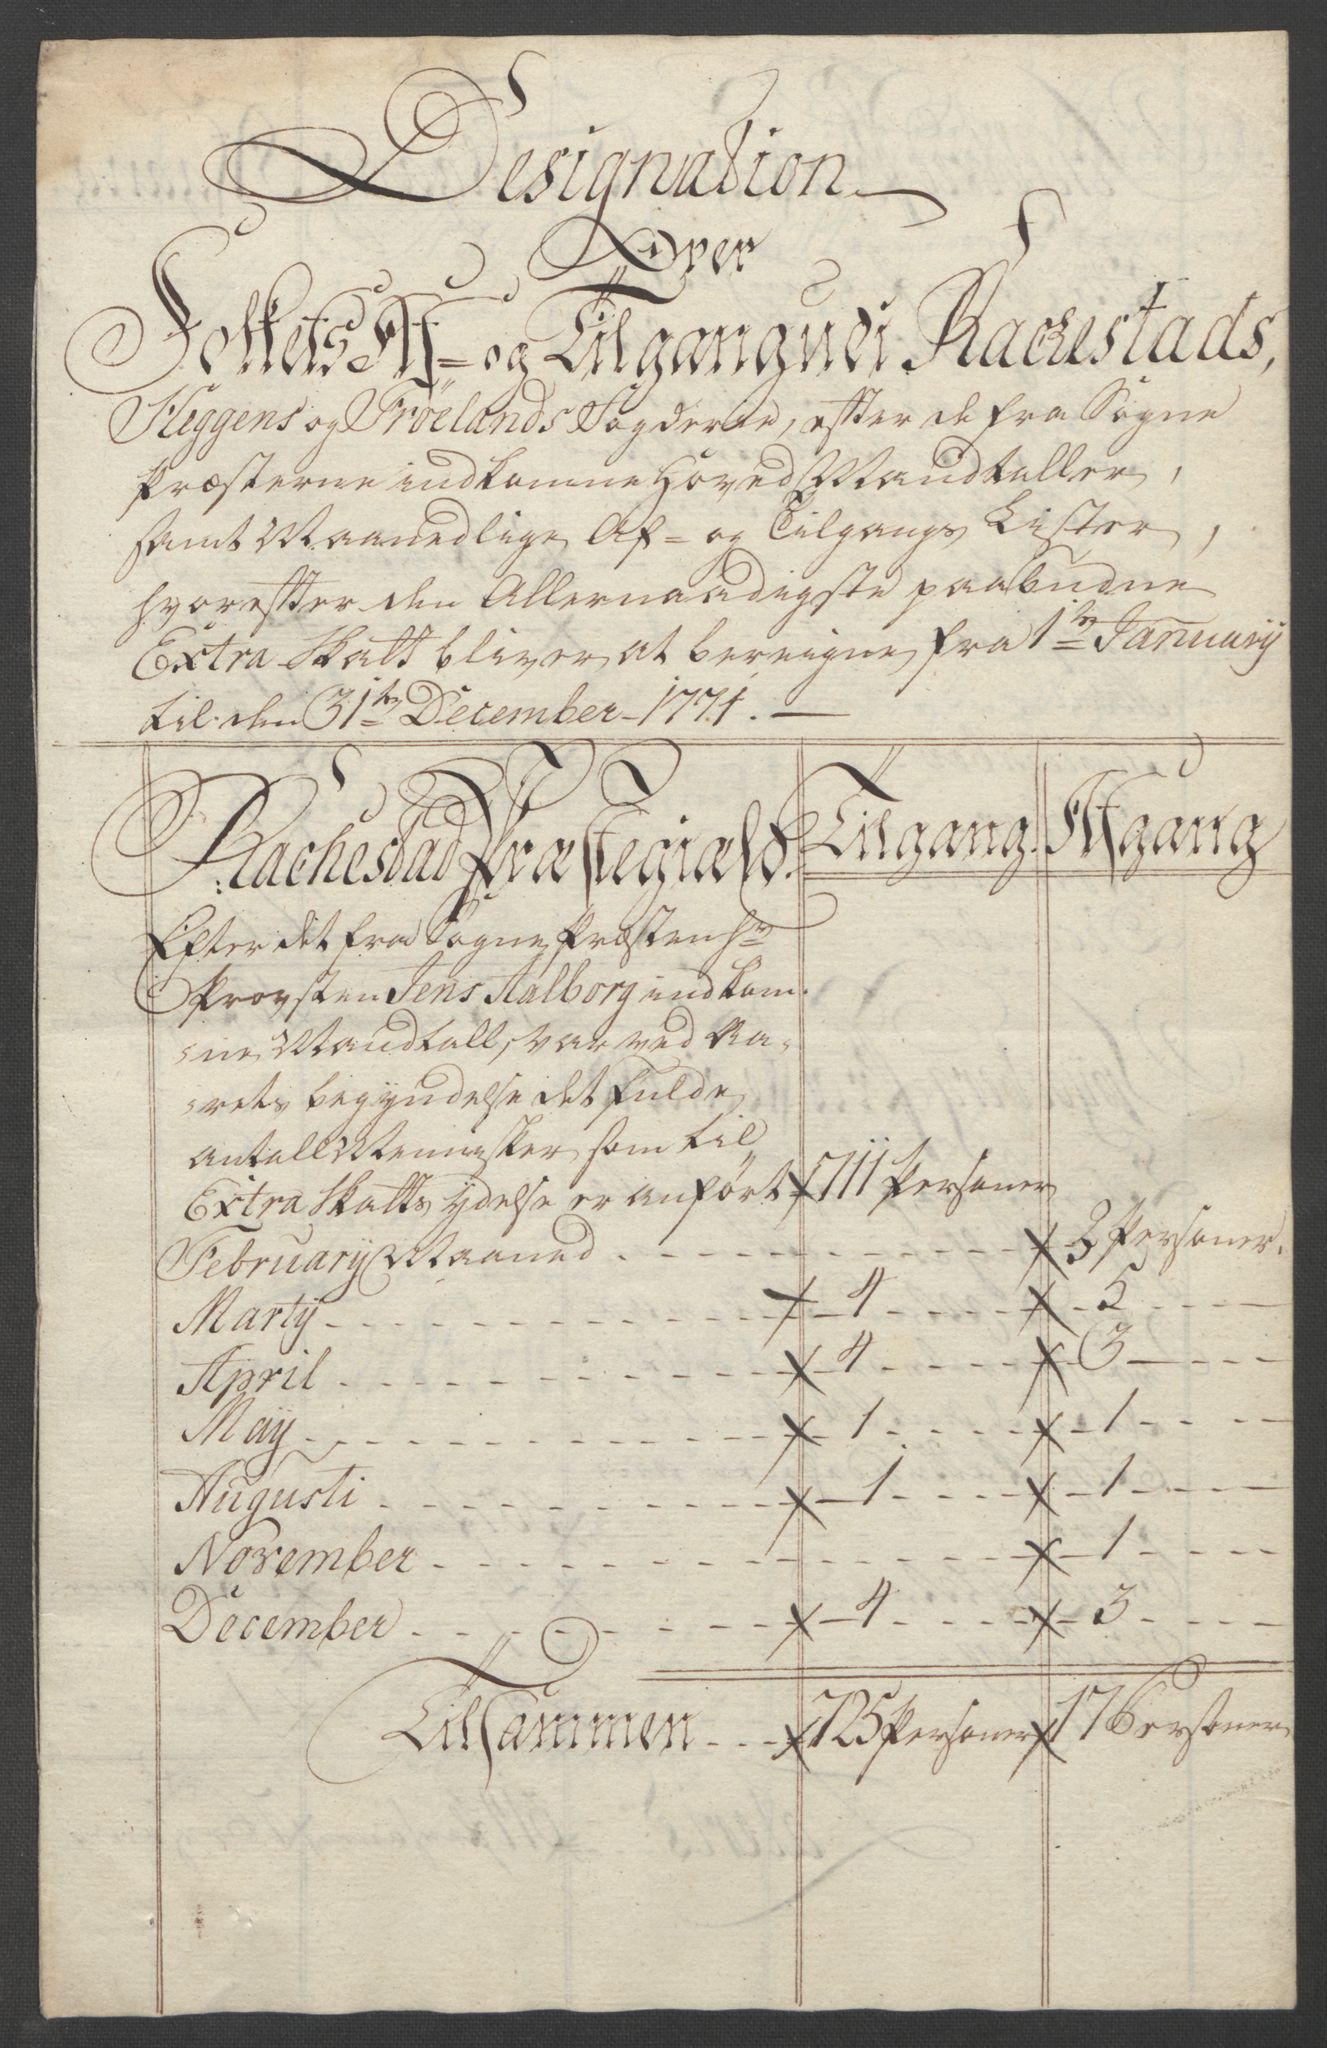 Designation
Over
Folkets Af= og Tilgang udi Rachestads,
Heggens og Frölands Fogderie, efter de fra Sogne
Præsterne indkomne Hoved Mandtaller,
samt Maanedlige Af= og Tilgangs Lister,
hvorefter den Allernaadigste paabudne
Extra Skatt bliver at bereigne fra 1te January
til den 31te December 1771.
Rachestad Præstegield. Tilgang. Afgang
Efter det fra Sogne Præsten Hr
Provsten Jens Aalborg indkom-
ne Mandtall, var ved Aa-
rets begyndelse det fulde
antall Mennesker som til
Extra Skatts ydelse er anført 711 Personer
February Maaned 3 Personer.
Marty 4 5
April 4 3
May 1 1
Augusti 1 1
November 1
December 4 3
Tilsammen 725 Personer 17 Personer